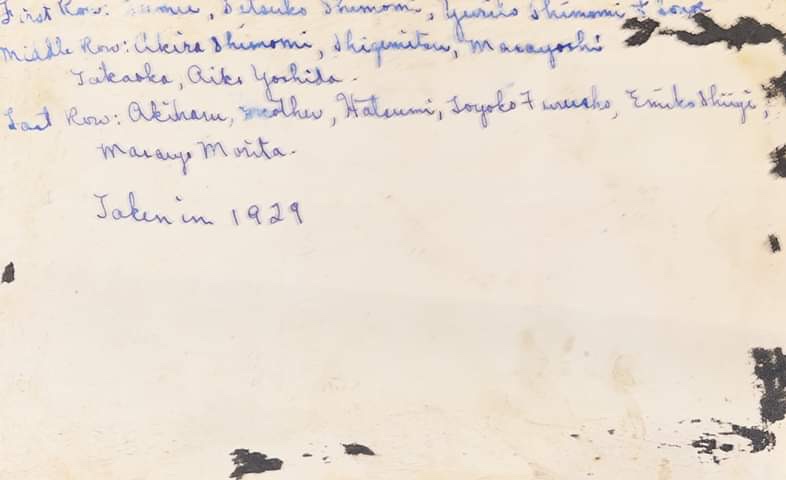 First Row: Sumie, Setsuko Shimomi, Yuriko Shimomi
Middle Row: Akira Shimomi, Shigemitsu, Masayoshi
Takaoka, Aiko Yoshida.
Last Row: Akiharu, mother, Hatsumi, Toyoko Furusho, Emiko Shigi,
Masayo Morita.
Taken in 1929